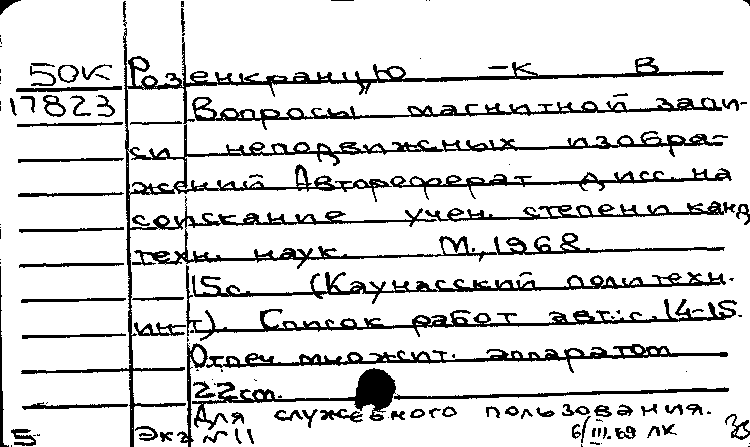 50К Розенкранцю -к В
17823 Вопросы магнитной запи-
си неподвижных изобра-
жений Автореферат дисс. на
соискание учен. степени канд
техн. наук. М., 1968.
15с. (Каунасский политехн.
ин-т). Список работ авт.: с. 14-15.
Отпеч множит. аппаратом
22cm.
Для служебного пользования.
5 Экз №11 6/III.69 ЛК